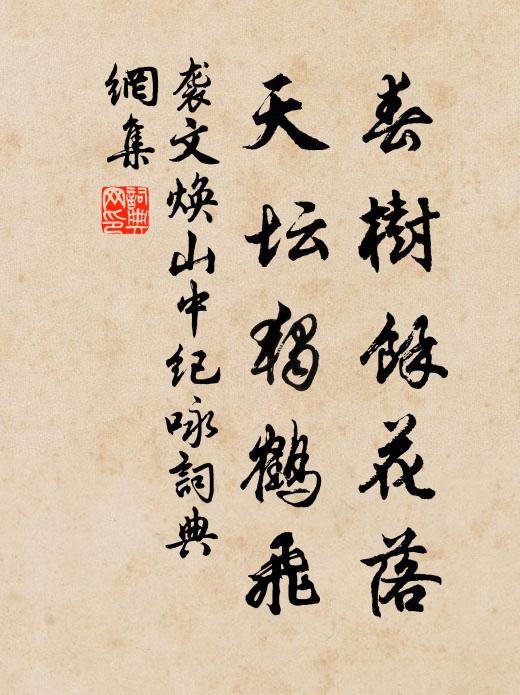 春樹餘花落
天坛獨鶴飛
袭文焕山中纪咏詞典
網集
詞典網印